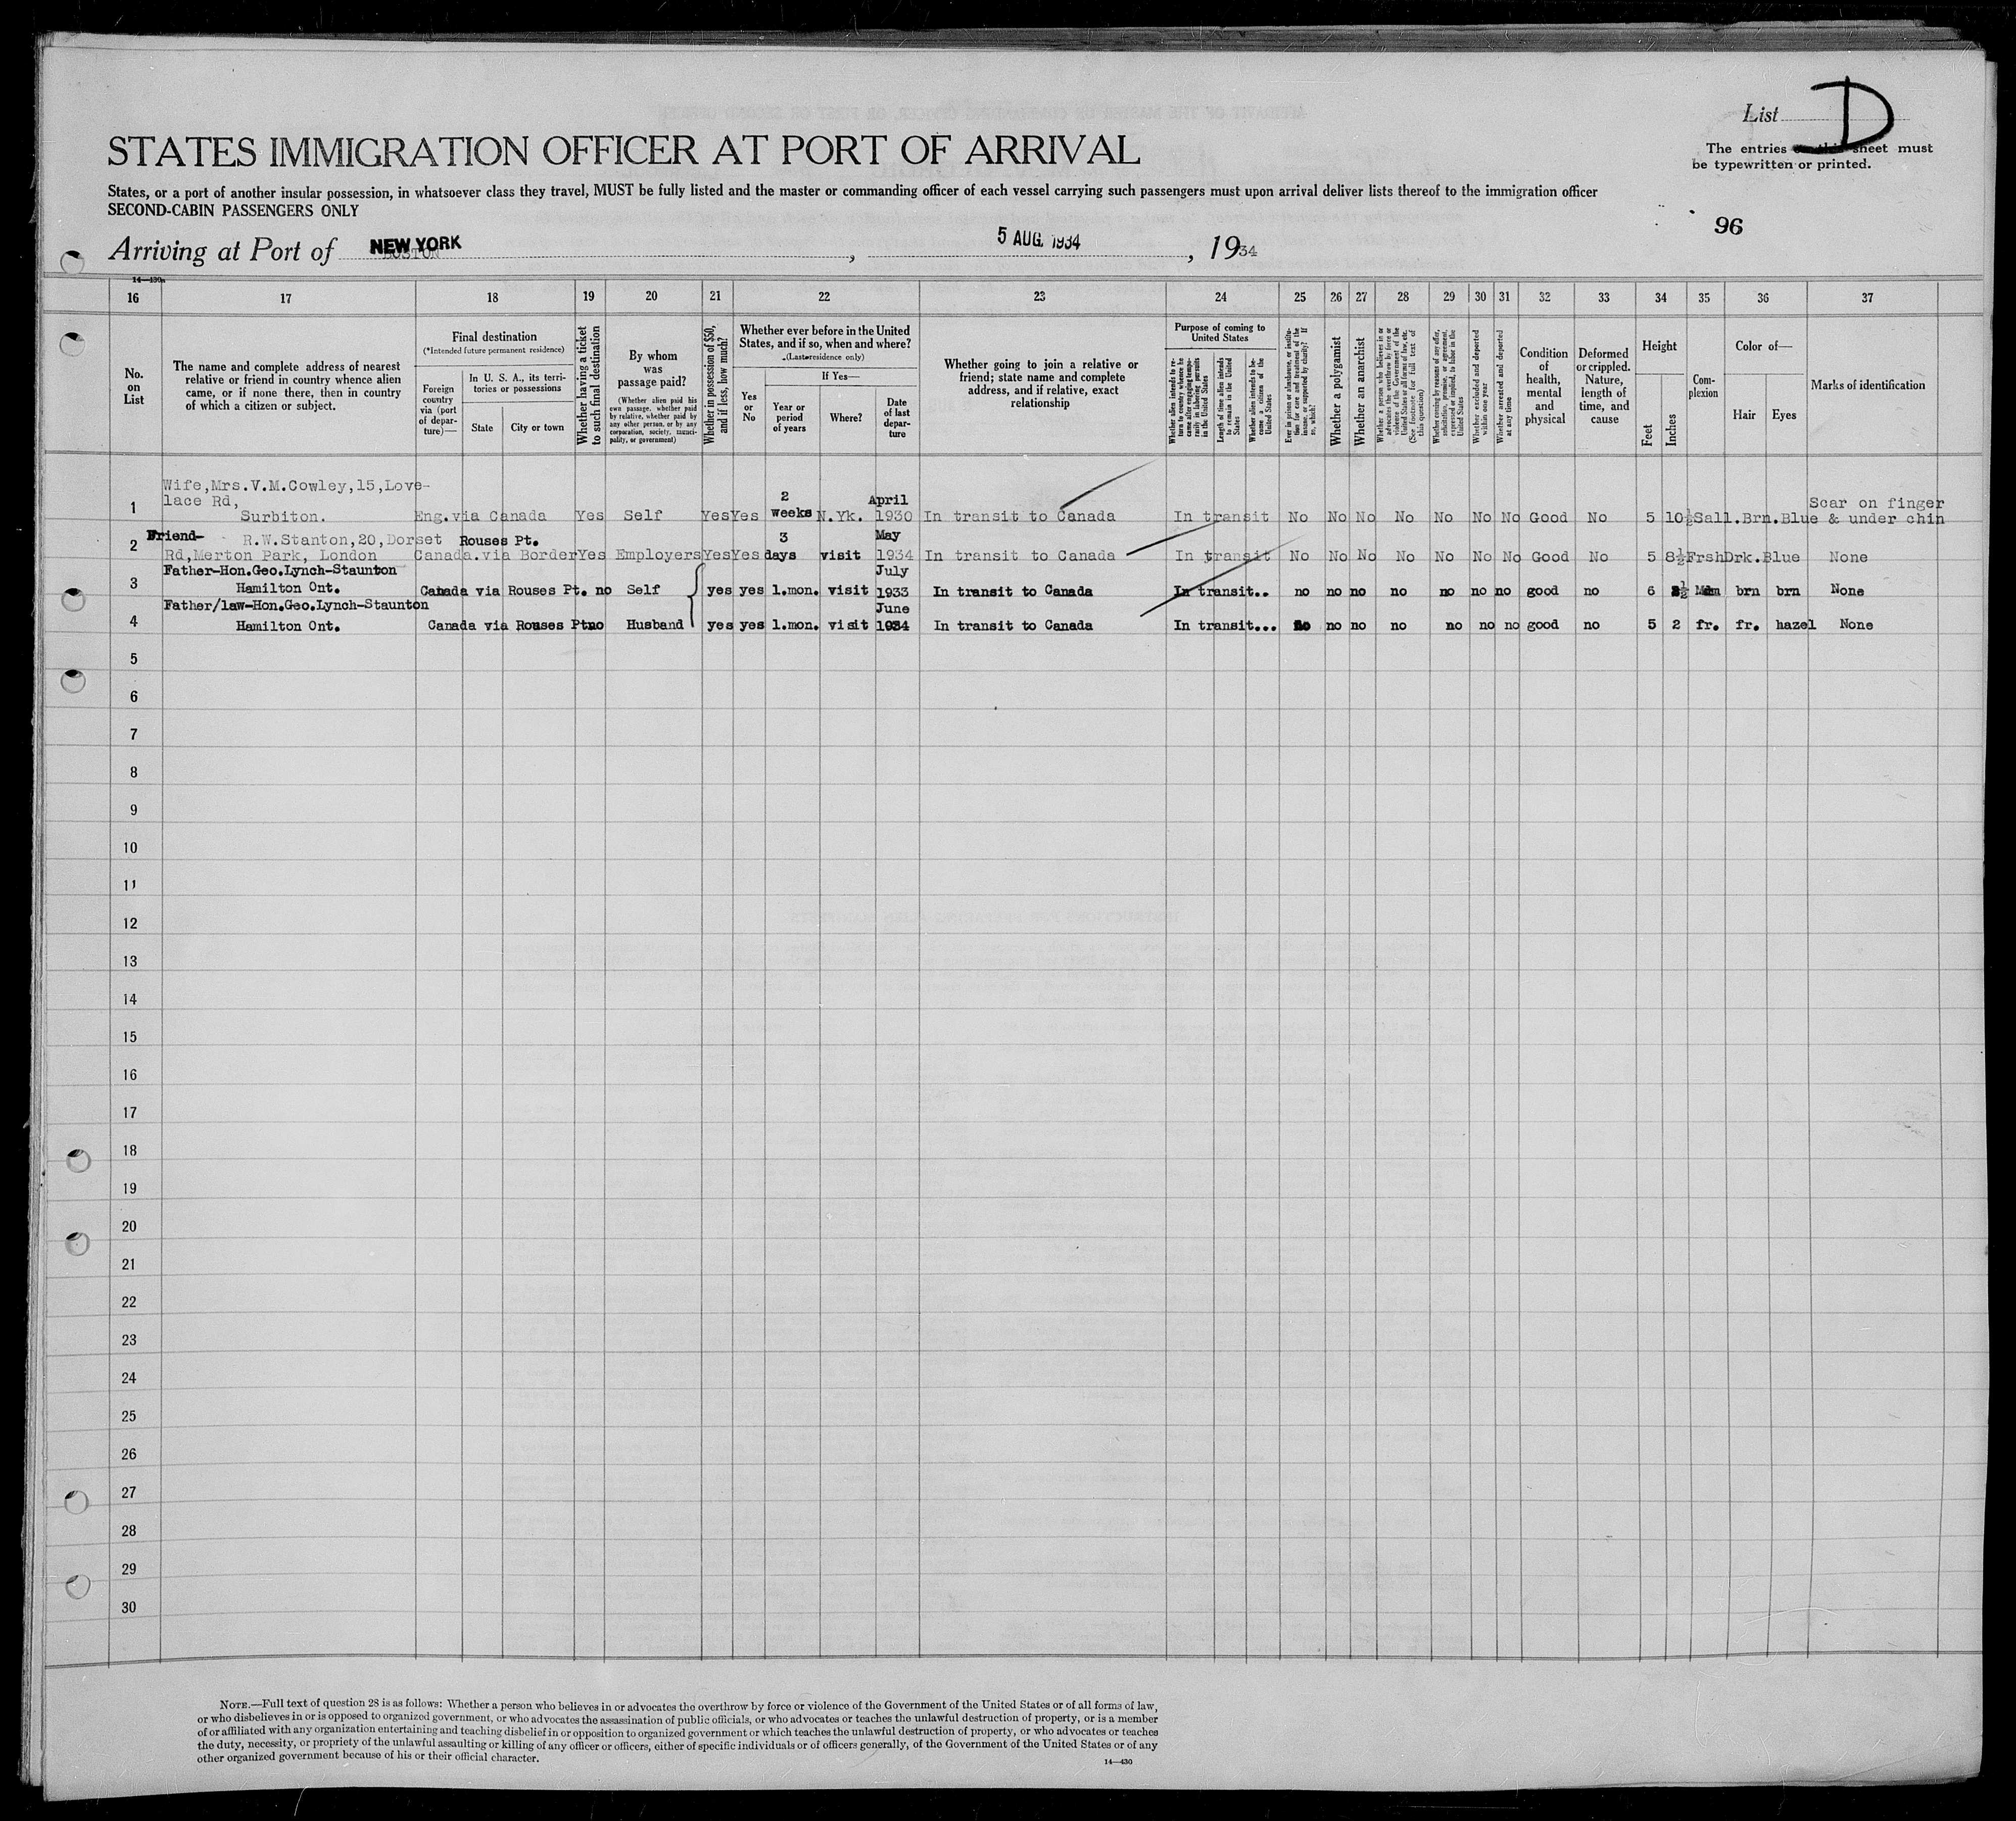 List D
STATES IMMIGRATION OFFICER AT PORT OF ARRIVAL
The entries on this sheet must
be typewritten or printed.
States, or a port of another insular possession, in whatsoever class they travel, MUST be fully listed and the master or commanding officer of each vessel carrying such passengers must upon arrival deliver lists thereof to the immigration officer
SECOND-CABIN PASSENGERS ONLY
96
Arriving at Port of NEW YORK BOSTON, 5 AUG. 1934, 1934
14—430a
16 17 18 19 20 21 22 23 24 25 26 27 28 29 30 31 32 33 34 35 36 37
No.
on
List
The name and complete address of nearest
relative or friend in country whence alien
came, or if none there, then in country
of which a citizen or subject.
Final destination
(*Intended future permanent residence)
Foreign
country
via (port
of depar-
ture)—
In U. S. A., its terri-
tories or possessions
State
City or town
Whether having a ticket
to such final destination
By whom
was
passage paid?
(Whether alien paid his
own passage, whether paid
by relative, whether paid by
any other person, or by any
corporation, society, munici-
pality, or government)
Whether in possession of $50,
and if less, how much?
Whether ever before in the United
States, and if so, when and where?
(Last residence only)
Yes
or
No
If Yes—
Year or
period
of years
Where?
Date
of last
depar-
ture
Whether going to join a relative or
friend; state name and complete
address, and if relative, exact
relationship
Purpose of coming to
United States
Whether alien intends to re-
turn to country whence he
came after engaging tempo-
rarily in laboring pursuits
in the United States
Length of time alien intends
to remain in the United
States
Whether alien intends to be-
come a citizen of the
United States
Ever in prison or almshouse, or institu-
tion for care and treatment of the
insane, or supported by charity? If
so, which?
Whether a polygamist
Whether an anarchist
Whether a person who believes in or
advocates the overthrow by force or
violence of the Government of the
United States or all forms of law, etc.
(See footnote for full text of
this question)
Whether coming by reasons of any offer,
solicitation, promise, or agreement,
expressed or implied, to labor in the
United States
Whether excluded and deported
within one year
Whether arrested and deported
at any time
Condition
of
health,
mental
and
physical
Deformed
or crippled.
Nature,
length of
time, and
cause
Height
Feet
Inches
Com-
plexion
Color of—
Hair
Eyes
Marks of identification
Wife,Mrs.V.M.Cowley,15,Love-
lace Rd, 2 April Scar on finger
1 Surbiton. Eng.via Canada Yes Self Yes Yes weeks N.Yk. 1930 In transit to Canada In transit No No No No No No No Good No 5 10½ Sall. Brn. Blue & under chin
Friend- R.W.Stanton,20,Dorset Rouses Pt. 3 May
2 Rd,Merton Park, London Canada.via Border Yes Employers Yes Yes days visit 1934 In transit to Canada In transit No No No No No No No Good No 5 8½ Frsh Drk. Blue None
Father-Hon.Geo.Lynch-Staunton July
3 Hamilton Ont. Canada via Rouses Pt. no Self yes yes 1.mon. visit 1933 In transit to Canada In transit.. no no no no no no no good no 6 ½ brn brn None
Father/law-Hon.Geo.Lynch-Staunton June
4 Hamilton Ont. Canada via Rouses Pt no Husband yes yes 1.mon. visit 1934 In transit to Canada In transit... no no no no no no no good no 5 2 fr. fr. hazel None
5
6
7
8
9
10
11
12
13
14
15
16
17
18
19
20
21
22
23
24
25
26
27
28
29
30
NOTE.—Full text of question 28 is as follows: Whether a person who believes in or advocates the overthrow by force or violence of the Government of the United States or of all forms of law,
or who disbelieves in or is opposed to organized government, or who advocates the assassination of public officials, or who advocates or teaches the unlawful destruction of property, or is a member
of or affiliated with any organization entertaining and teaching disbelief in or opposition to organized government or which teaches the unlawful destruction of property, or who advocates or teaches
the duty, necessity, or propriety of the unlawful assaulting or killing of any officer or officers, either of specific individuals or of officers generally, of the Government of the United States or of any
other organized government because of his or their official character.
14—430